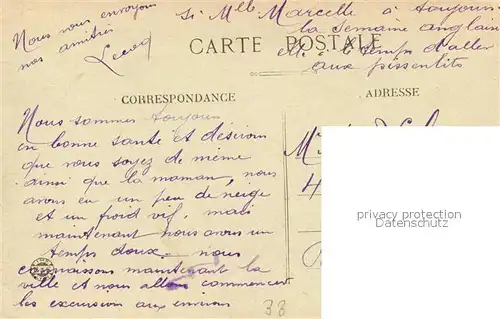 Nous vous envoyons
nos amitiés
Lecoq
Si Mlle Marcelle a toujours
la semaine anglaise
le temps d'aller
aux pissenlits
CARTE POSTALE
CORRESPONDANCE
ADRESSE
Nous sommes toujours
en bonne santé et désirons
que vous soyez de même
ainsi que la maman, nous
avons eu un peu de neige
et un froid vif, mais
maintenant nous avons un
temps doux. nous
connaissons maintenant la
ville et nous allons commencer
les excursion aux environs
38
4
privacy protection
Datenschutz